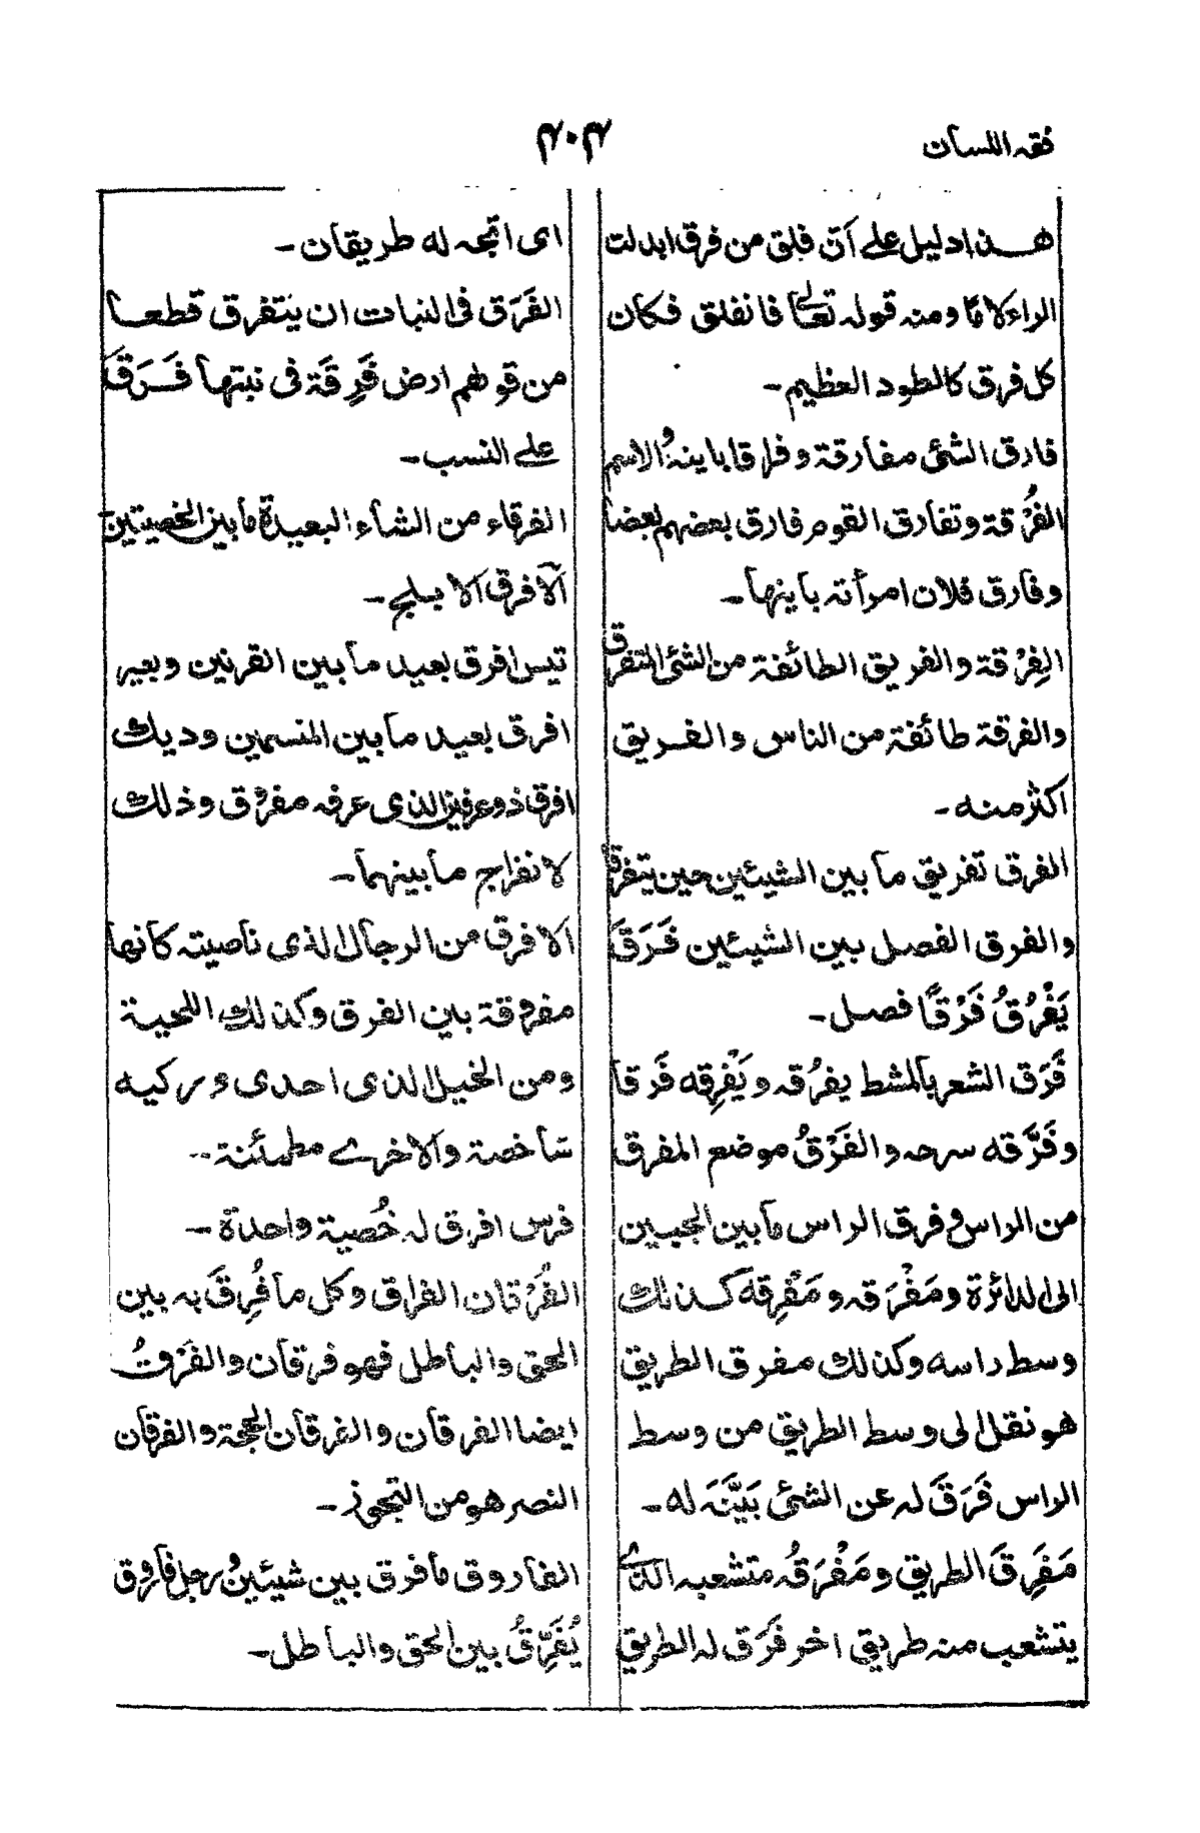 فقه اللسان
۴۰۴
هذا دليل على ان فلق من فرق ابدلت
الراء لاما ومنه قوله تعالى فانفلق فكان
كل فرق كالطود العظيم۔
فارق الشئ مفارقة وفراقا باينهُ والاسم
الفُرقة وتفارق القوم فارق بعضهم بعضا
وفارق فلان امرأته باينها۔
الفِرْقة والفريق الطائفة من الشئ المتفرق
والفرقة طائفة من الناس والفريق
اكثر منه۔
الفرق تفريق ما بين الشيئين حين يتفرقا
والفرق الفصل بين الشيئين فَرَقَ
يَفْرُقُ فَرْقًا فصل۔
فَرَق الشعر بالمشط يفرُقه ويَفْرِقه فَرقا
وفَرَّقه سرحه والفَرْقُ موضع المفرق
من الراس وفرق الراس مابين الجبين
الى الدائرة ومَفْرَقه ومَفْرِقه كذلك
وسط راسه وكذلك مفرق الطريق
هو نقل الى وسط الطريق من وسط
الراس فَرَقَ له عن الشئ بَيَّنَه له۔
مَفرِقَ الطريق ومَفْرَقُه متشعبه الذى
يتشعب منه طريق اخر فَرَق له الطريق
اى اتجه له طريقان۔
الفَرَق فى النبات ان يتفرق قطعا
من قولهم ارض فَرِقَة فى نبتها فَرَقَ
على النسب۔
الفرقاء من الشاء البعيدة مابين الخصيتين
الافرق الابلج۔
تيس افرق بعيد ما بين القرنين وبعير
افرق بعيد ما بين المنسمين وديك
افرق ذو عرفين الذى عرفه مفروق وذلك
لانفراج ما بينهما۔
الافرق من الرجال الذى ناصيته كانها
مفروقة بين الفرق وكذلك اللحية
ومن الخيل الذى احدى وركيه
شاخصة والاخرى مطمئنة۔
فرس افرق له خُصية واحدة۔
الفُرْقان الفراق وكل ما فُرِقَ به بين
الحق والباطل فهو فرقان والفُرْقُ
ايضا الفرقان والفرقان الحجة والفرقان
النصر هو من التجوز۔
الفاروق مافرق بين شيئين ورجل فاروق
يُفَرِّقُ بين الحق والباطل۔